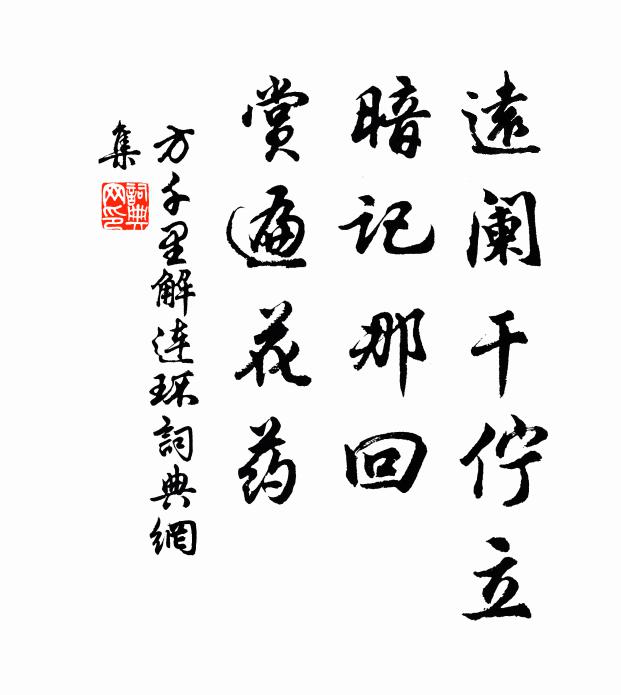 遠阑干佇立
暗记那回
赏遍花药
方千里解连环詞典網
集
詞典
网印